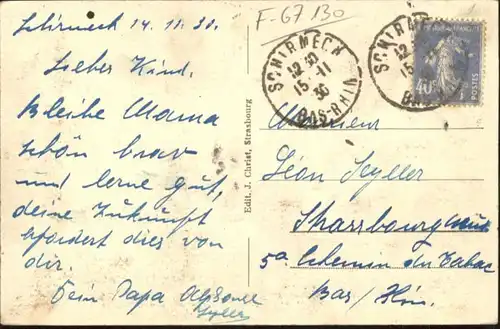 Schirmeck 14.11.30.
Liebes Kind.
Bleibe Mama
schön brav
und lerne gut,
deine Zukunft
erfordert dies von
dir.
Dein Papa
F-67130
SCHIRMECK
12 30
15-11
30
BAS-RHIN
SCHIRME
12
15
BAS
40
POSTES
Edit. J. Christ, Strasbourg
Monsieur
Léon
Strassbourg
5a Chemin du Tabac
Bas/Rhin.